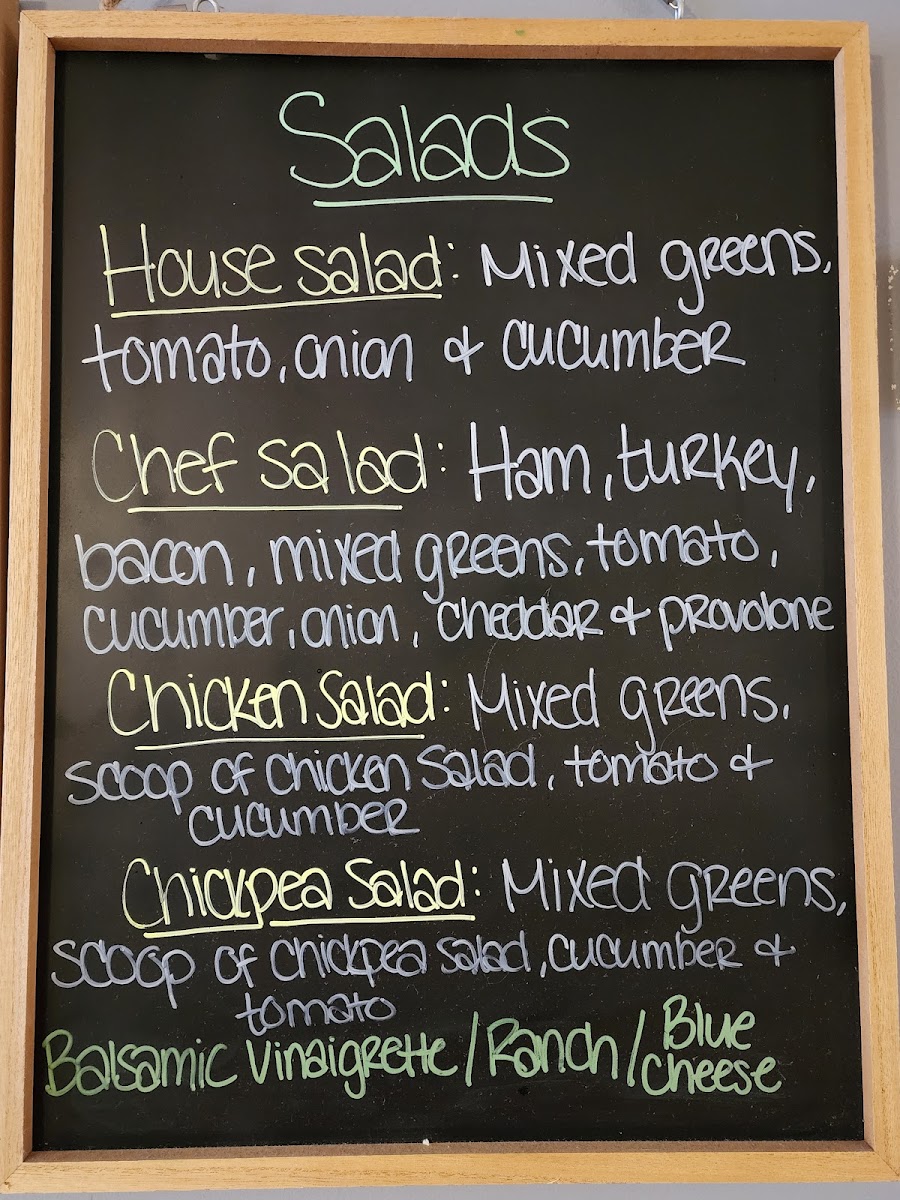 Salads
House salad: Mixed greens,
tomato, onion & cucumber
Chef salad: Ham, turkey,
bacon, mixed greens, tomato,
cucumber, onion, cheddar & provolone
Chicken Salad: Mixed greens,
scoop of chicken salad, tomato &
cucumber
Chickpea Salad: Mixed greens,
scoop of chickpea salad, cucumber &
tomato
Balsamic Vinaigrette / Ranch / Blue
Cheese